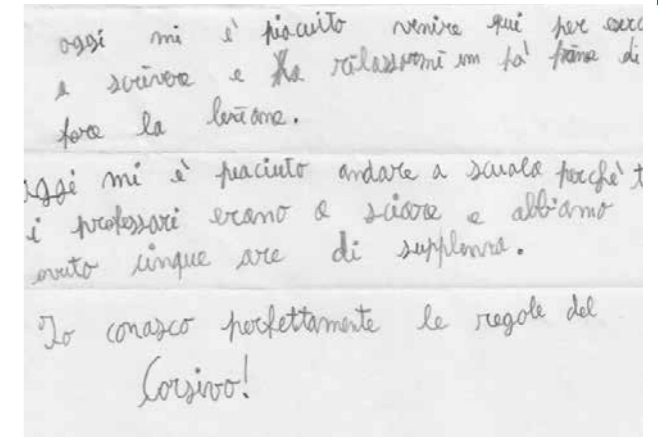 oggi mi è piaciuto venire qui per
a scrivere e rilassarmi un pò prima di
fare la lezione.
oggi mi è piaciuto andare a scuola perchè t
i professori erano a sciare e abbiamo
avuto cinque ore di supplenza.
Io conosco perfettamente le regole del
Corsivo!